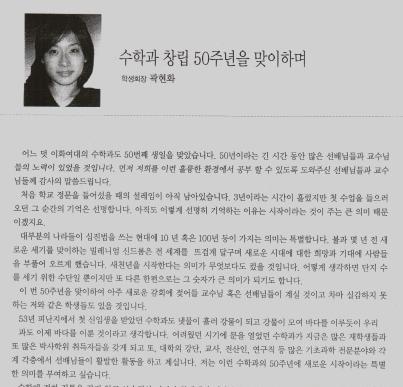 수학과 창립 50주년을 맞이하며
학생회장 곽현화
어느 덧 이화여대의 수학과도 50번째 생일을 맞았습니다. 50년이라는 긴 시간 동안 많은 선배님들과 교수님
들의 노력이 있었을 것입니다. 먼저 저희를 이런 훌륭한 환경에서 공부 할 수 있도록 도와주신 선배님들과 교수
님들께 감사의 말씀드립니다.
처음 학교 정문을 들어섰을 때의 설레임이 아직 남아있습니다. 3년이라는 시간이 흘렀지만 첫 수업을 들으러
오던 그 순간의 기억은 선명합니다. 아직도 이렇게 선명히 기억하는 이유는 시작이라는 것이 주는 큰 의미 때문
이겠지요.
대부분의 나라들이 십진법을 쓰는 현대에 10 년 혹은 100년 등이 가지는 의미는 특별합니다. 불과 몇 년 전 새
로운 세기를 맞이하는 밀레니엄 신드롬은 전 세계를 뜨겁게 달구며 새로운 시대에 대한 희망과 기대에 사람들
을 부풀어 오르게 했습니다. 새천년을 시작한다는 의미가 무엇보다도 컸을 것입니다. 어떻게 생각하면 단지 수
를 세기 위한 수단일 뿐이지만 또 다른 한편으로는 그 숫자가 큰 의미가 되기도 합니다.
이 번 50주년을 맞이하여 아주 새로운 감회에 젖어볼 교수님 혹은 선배님들이 계실 것이고 차마 실감하지 못
하는 저와 같은 학생들도 있을 것입니다.
53년 피난지에서 첫 신입생을 받았던 수학과도 냇물이 흘러 강물이 되고 강물이 모여 바다를 이루듯이 우리
과도 이제 바다를 이룬 것이라고 생각합니다. 어려웠던 시기에 문을 열었던 수학과가 지금은 많은 재학생들과
또 많은 박사학위 취득자들을 갖게 되고 또, 대학의 강단, 교사, 전산인, 연구직 등 많은 기초과학 전문분야와 각
계 각층에서 선배님들이 활발한 활동을 하고 계십니다. 저는 이런 수학과의 50주년에 새로운 시작이라는 특별
한 의미를 부여하고 싶습니다.